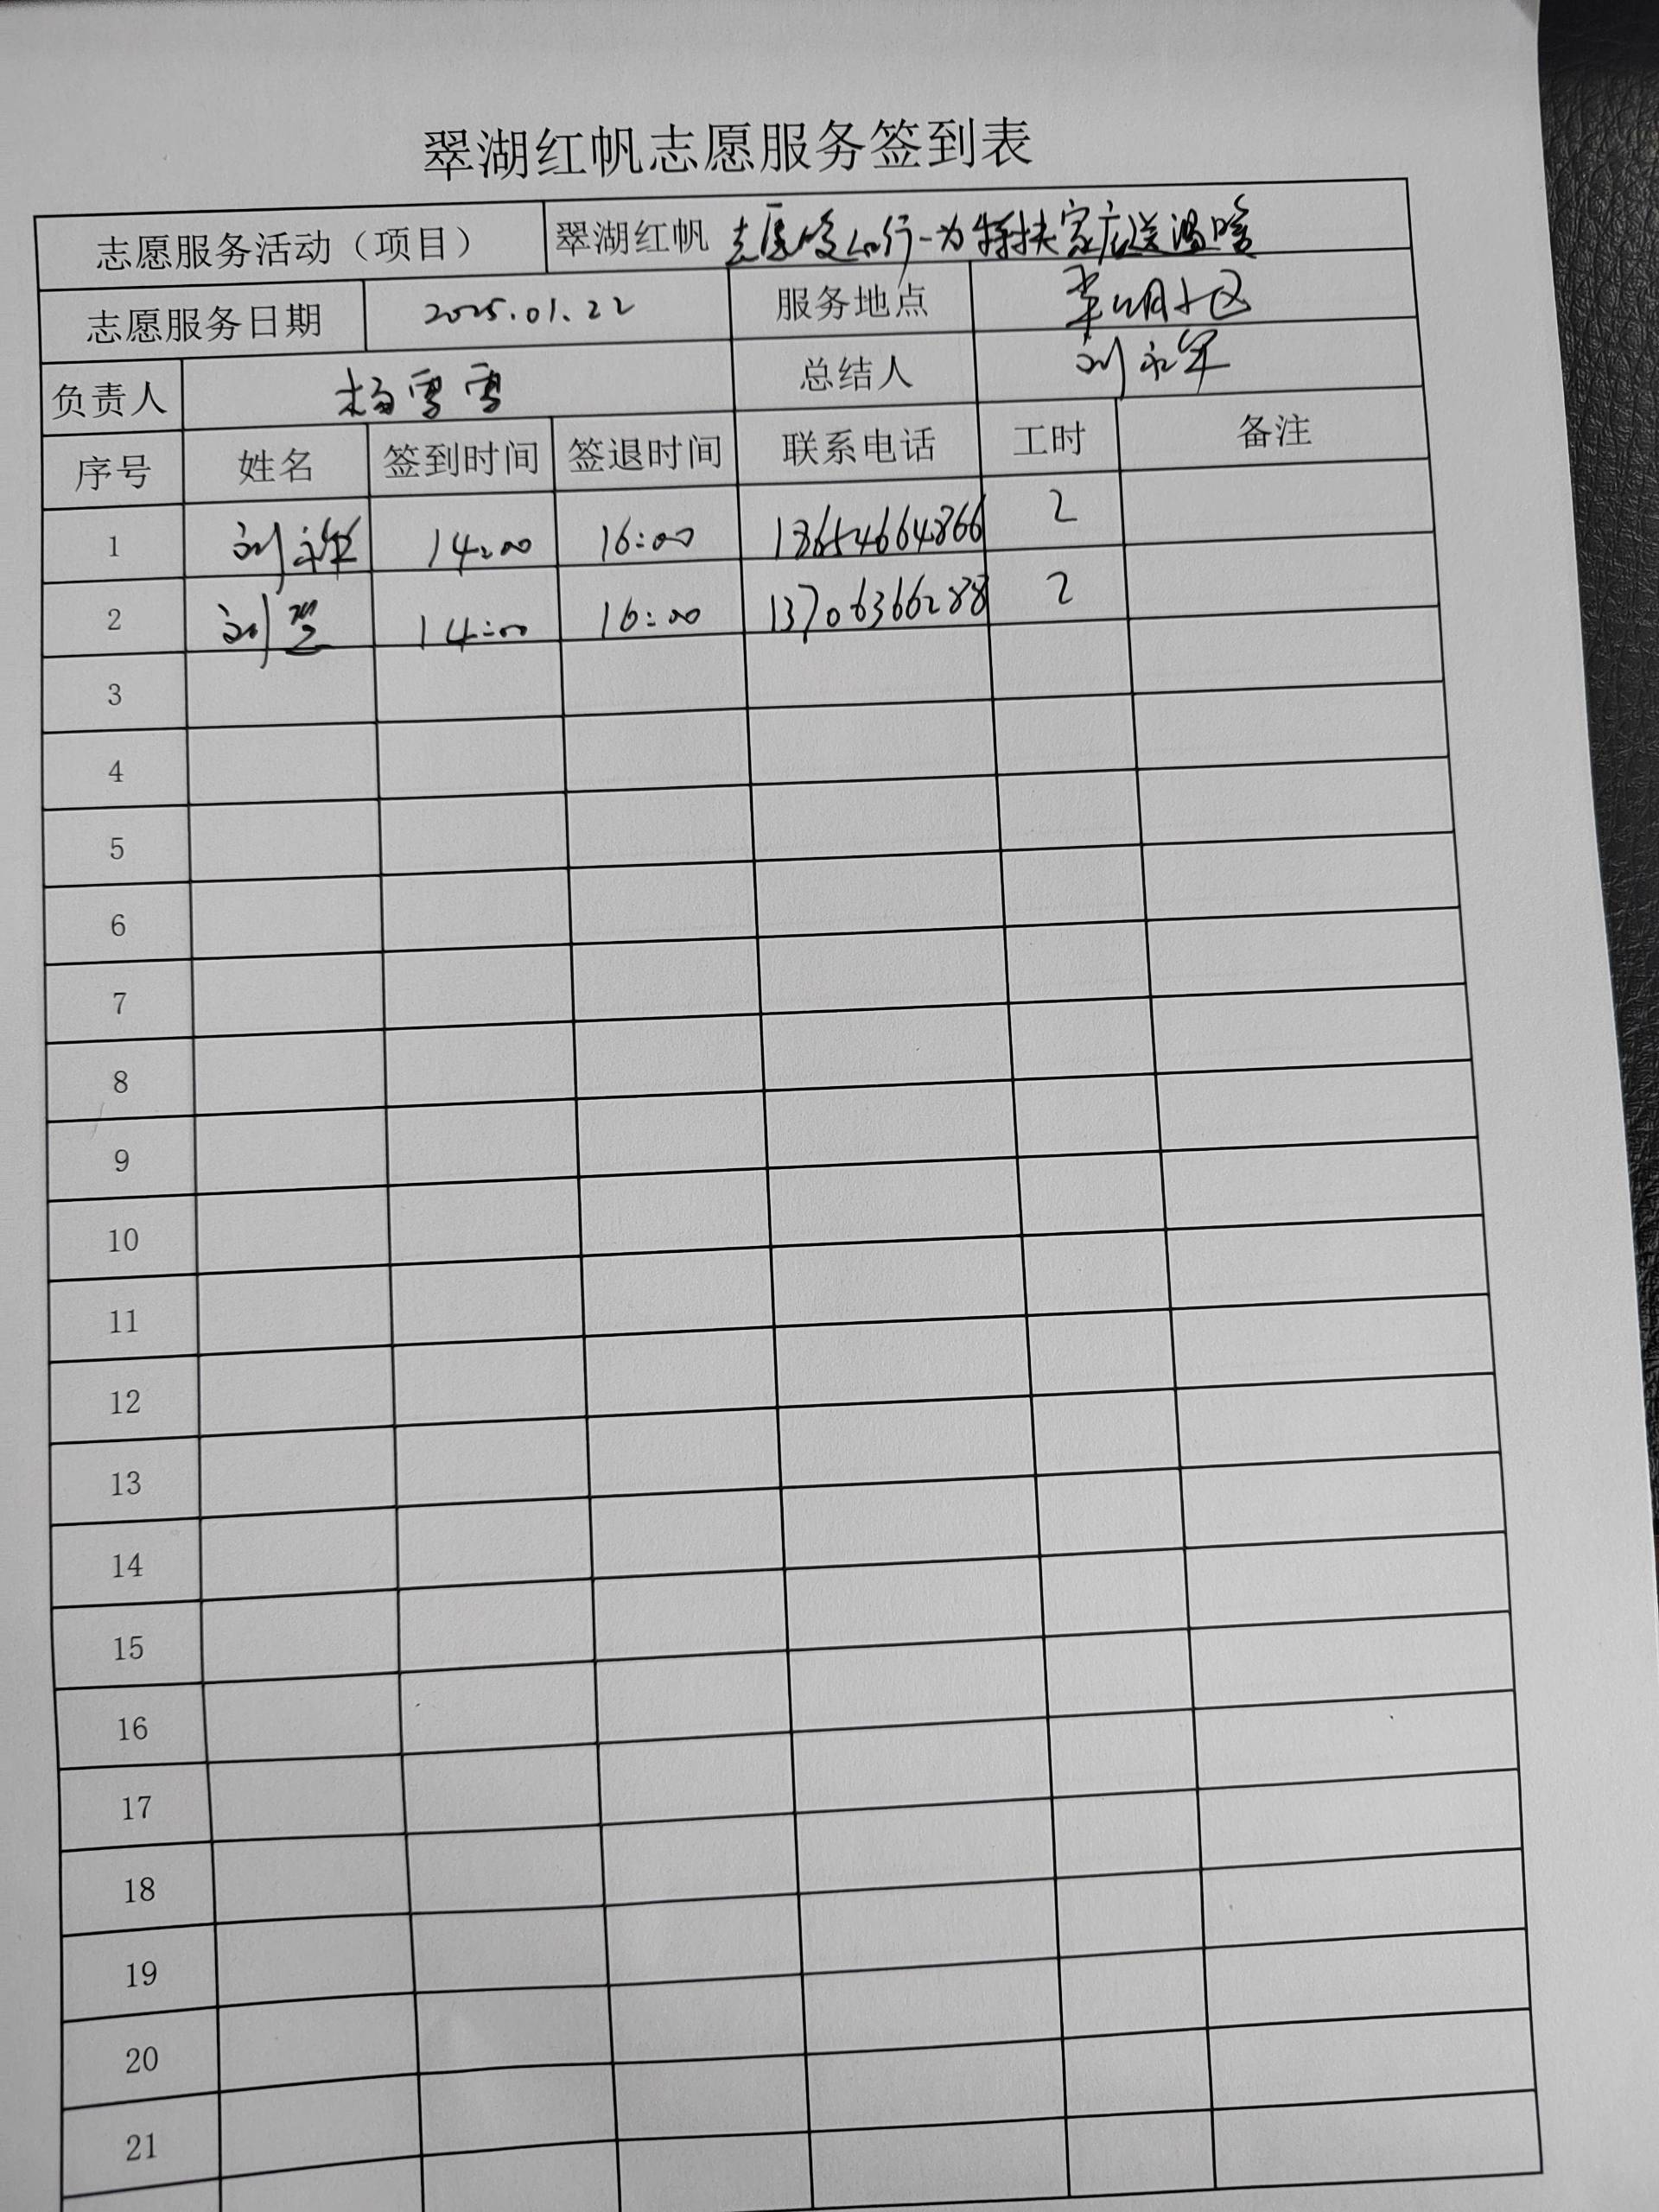 翠湖红帆志愿服务签到表
志愿服务活动（项目） 翠湖红帆 志愿暖心行-为特扶家庭送温暖
志愿服务日期 2025.01.22 服务地点 小区
负责人 杨雪雪 总结人 刘永军
序号 姓名 签到时间 签退时间 联系电话 工时 备注
1 刘 14:00 16:00 18654664866 2
2 刘 14:00 16:00 13706366288 2
3
4
5
6
7
8
9
10
11
12
13
14
15
16
17
18
19
20
21